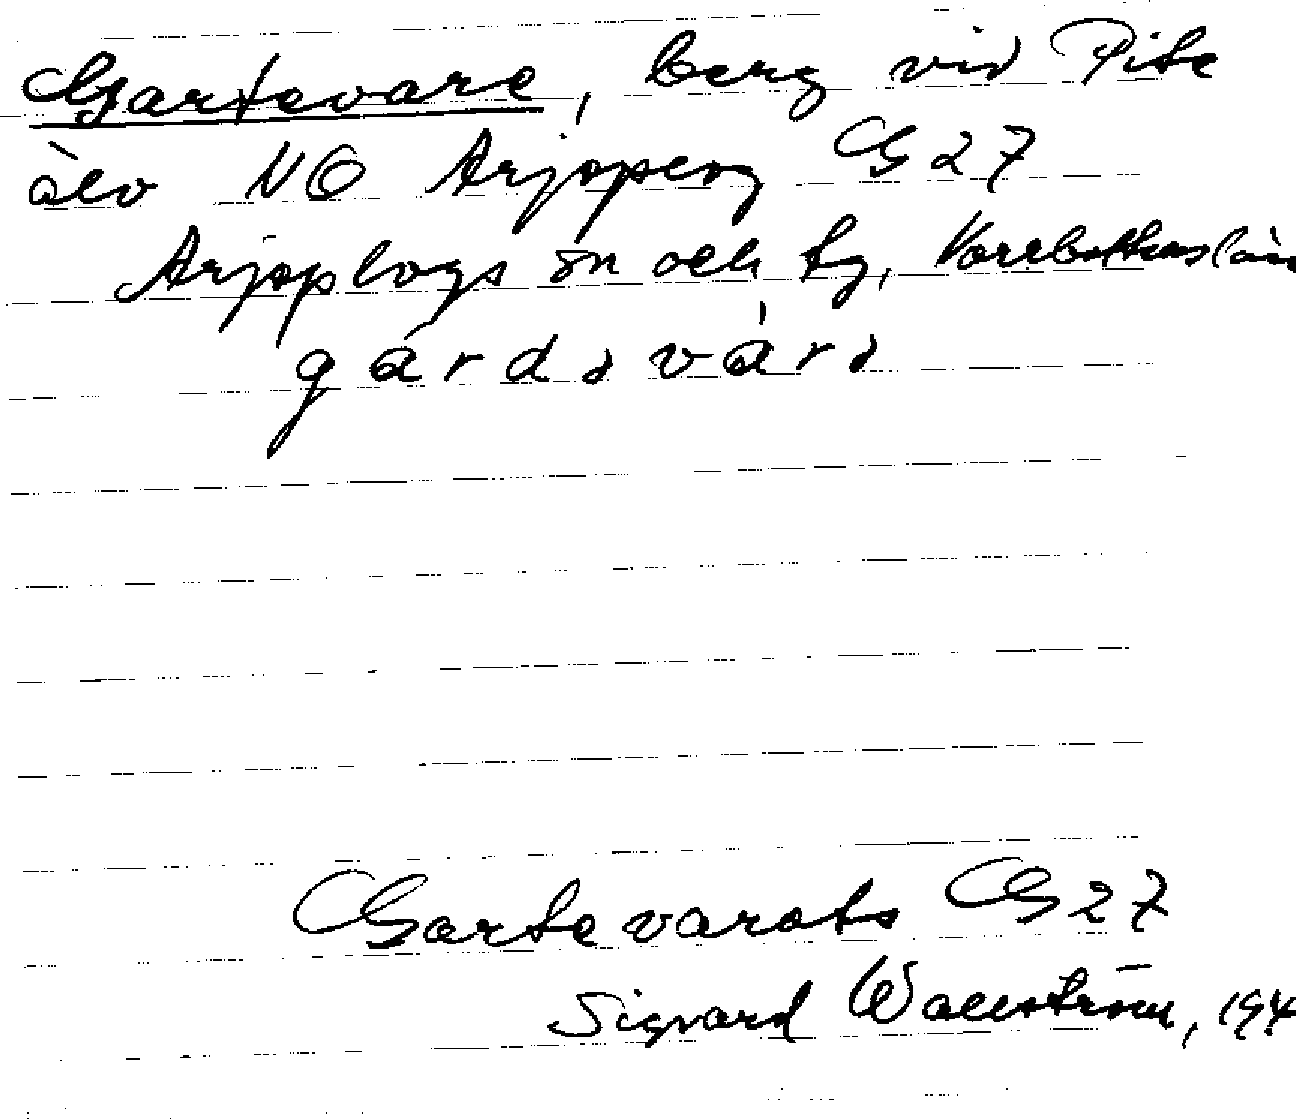 Gartevare, berg vid Pite
älv NO Arjeplog G27
Arjeplogs sn och tg, Norrbottens län
gárdəvárə
Gartevarats G27
Sigvard Wallström, 194